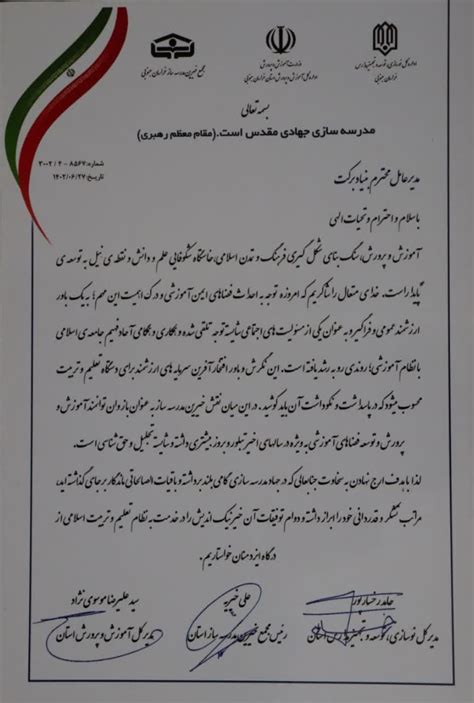 اداره کل نوسازی، توسعه و تجهیز مدارس
خراسان جنوبی
وزارت آموزش و پرورش
اداره کل آموزش و پرورش استان خراسان جنوبی
مجمع خیرین مدرسه ساز خراسان جنوبی
بسمه تعالی
مدرسه سازی جهادی مقدس است.(مقام معظم رهبری)
شماره: ۸۵۶۷ - ۴ / ۳۰۰۲
تاریخ: ۱۴۰۲/۰۶/۲۷
مدیرعامل محترم بنیاد برکت
با سلام و احترام و تحیات الهی
آموزش و پرورش، سنگ بنای شکل گیری فرهنگ و تمدن اسلامی، خاستگاه شکوفایی علم و دانش و نقطه ی نیل به توسعه ی
پایدار است. خدای متعال را شاکریم که امروزه توجه به احداث فضاهای ایمن آموزشی و درک اهمیت این مهم؛ به یک باور
ارزشمند عمومی و فراگیر و به عنوان یکی از مسئولیت های اجتماعی شایسته توجه تلقی شده و همکاری و همگامی آحاد فهیم جامعه ی اسلامی
با نظام آموزشی؛ روندی رو به رشد یافته است. این نگرش و باور افتخار آفرین سرمایه های ارزشمند برای دستگاه تعلیم و تربیت
محسوب میشود که در پاسداشت و نکوداشت آن باید کوشید. در این میان نقش خیرین مدرسه ساز به عنوان بازوان توانمند آموزش و
پرورش و توسعه فضاهای آموزشی به ویژه در سالهای اخیر تبلور و بروز بیشتری داشته و شایسته تجلیل و حق شناسی است.
لذا با هدف ارج نهادن به سخاوت جنابعالی که در جهاد مدرسه سازی گامی بلند برداشته و باقیات الصالحاتی ماندگار برجای گذاشته اید،
مراتب تشکر و قدردانی خود را ابراز داشته و دوام توفیقات آن خیر نیک اندیش را در خدمت به نظام تعلیم و تربیت اسلامی از
درگاه ایزد منان خواستاریم.
حامد رخسارپور
علی خیریه
سید علیرضا موسوی نژاد
مدیرکل نوسازی، توسعه و تجهیز مدارس استان
رئیس مجمع خیرین مدرسه ساز استان
مدیرکل آموزش و پرورش استان